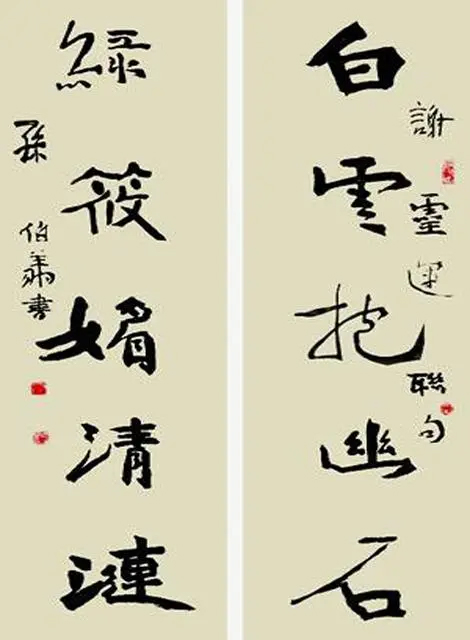 白雲抱幽石
謝靈運聯句
綠筱媚清漣
孫伯翔書